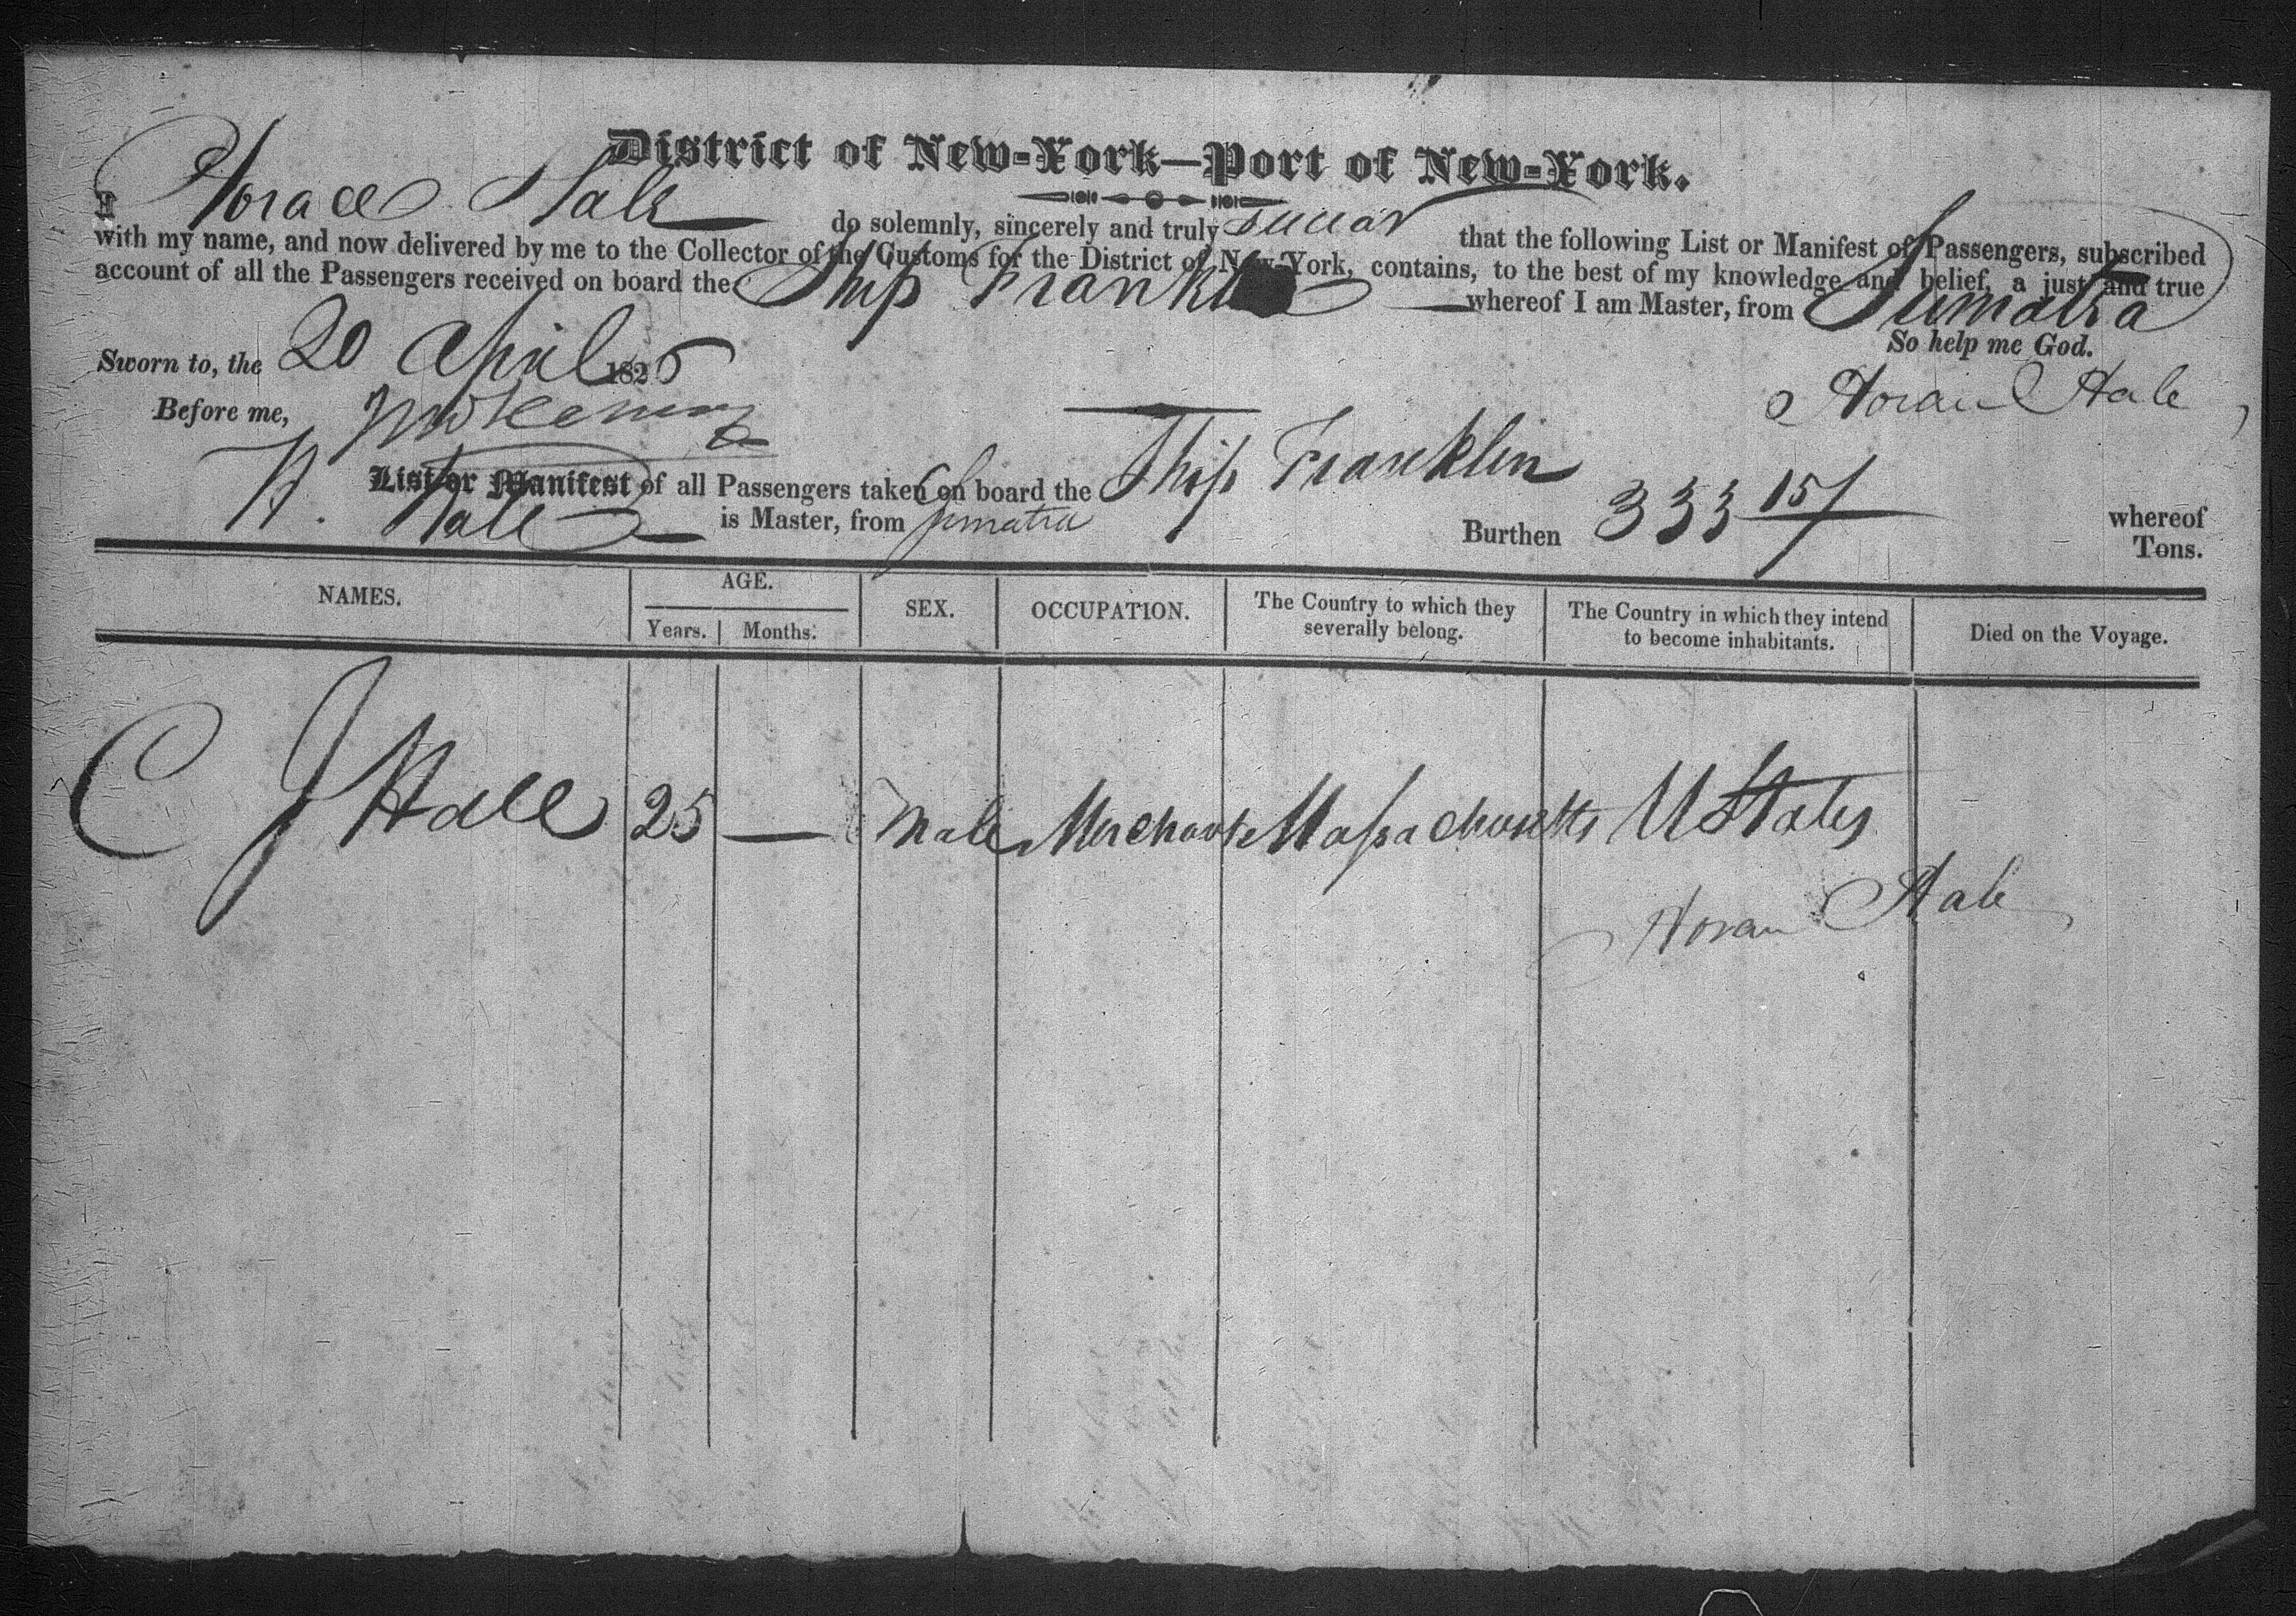 District of New-York—Port of New-York.
I Horace Hale do solemnly, sincerely and truly swear that the following List or Manifest of Passengers, subscribed
with my name, and now delivered by me to the Collector of the Customs for the District of New-York, contains, to the best of my knowledge and belief, a just and true
account of all the Passengers received on board the Ship Franklin whereof I am Master, from Sumatra
So help me God.
Sworn to, the 20 April 1826
Horace Hale
Before me,
List or Manifest of all Passengers taken on board the Ship Franklin whereof
H. Hale is Master, from Sumatra Burthen 333 15/ Tons.
NAMES. AGE. SEX. OCCUPATION. The Country to which they severally belong. The Country in which they intend to become inhabitants. Died on the Voyage.
Years. Months.
C J Hale 25 — Male Merchant Massachusetts U States
Horace Hale